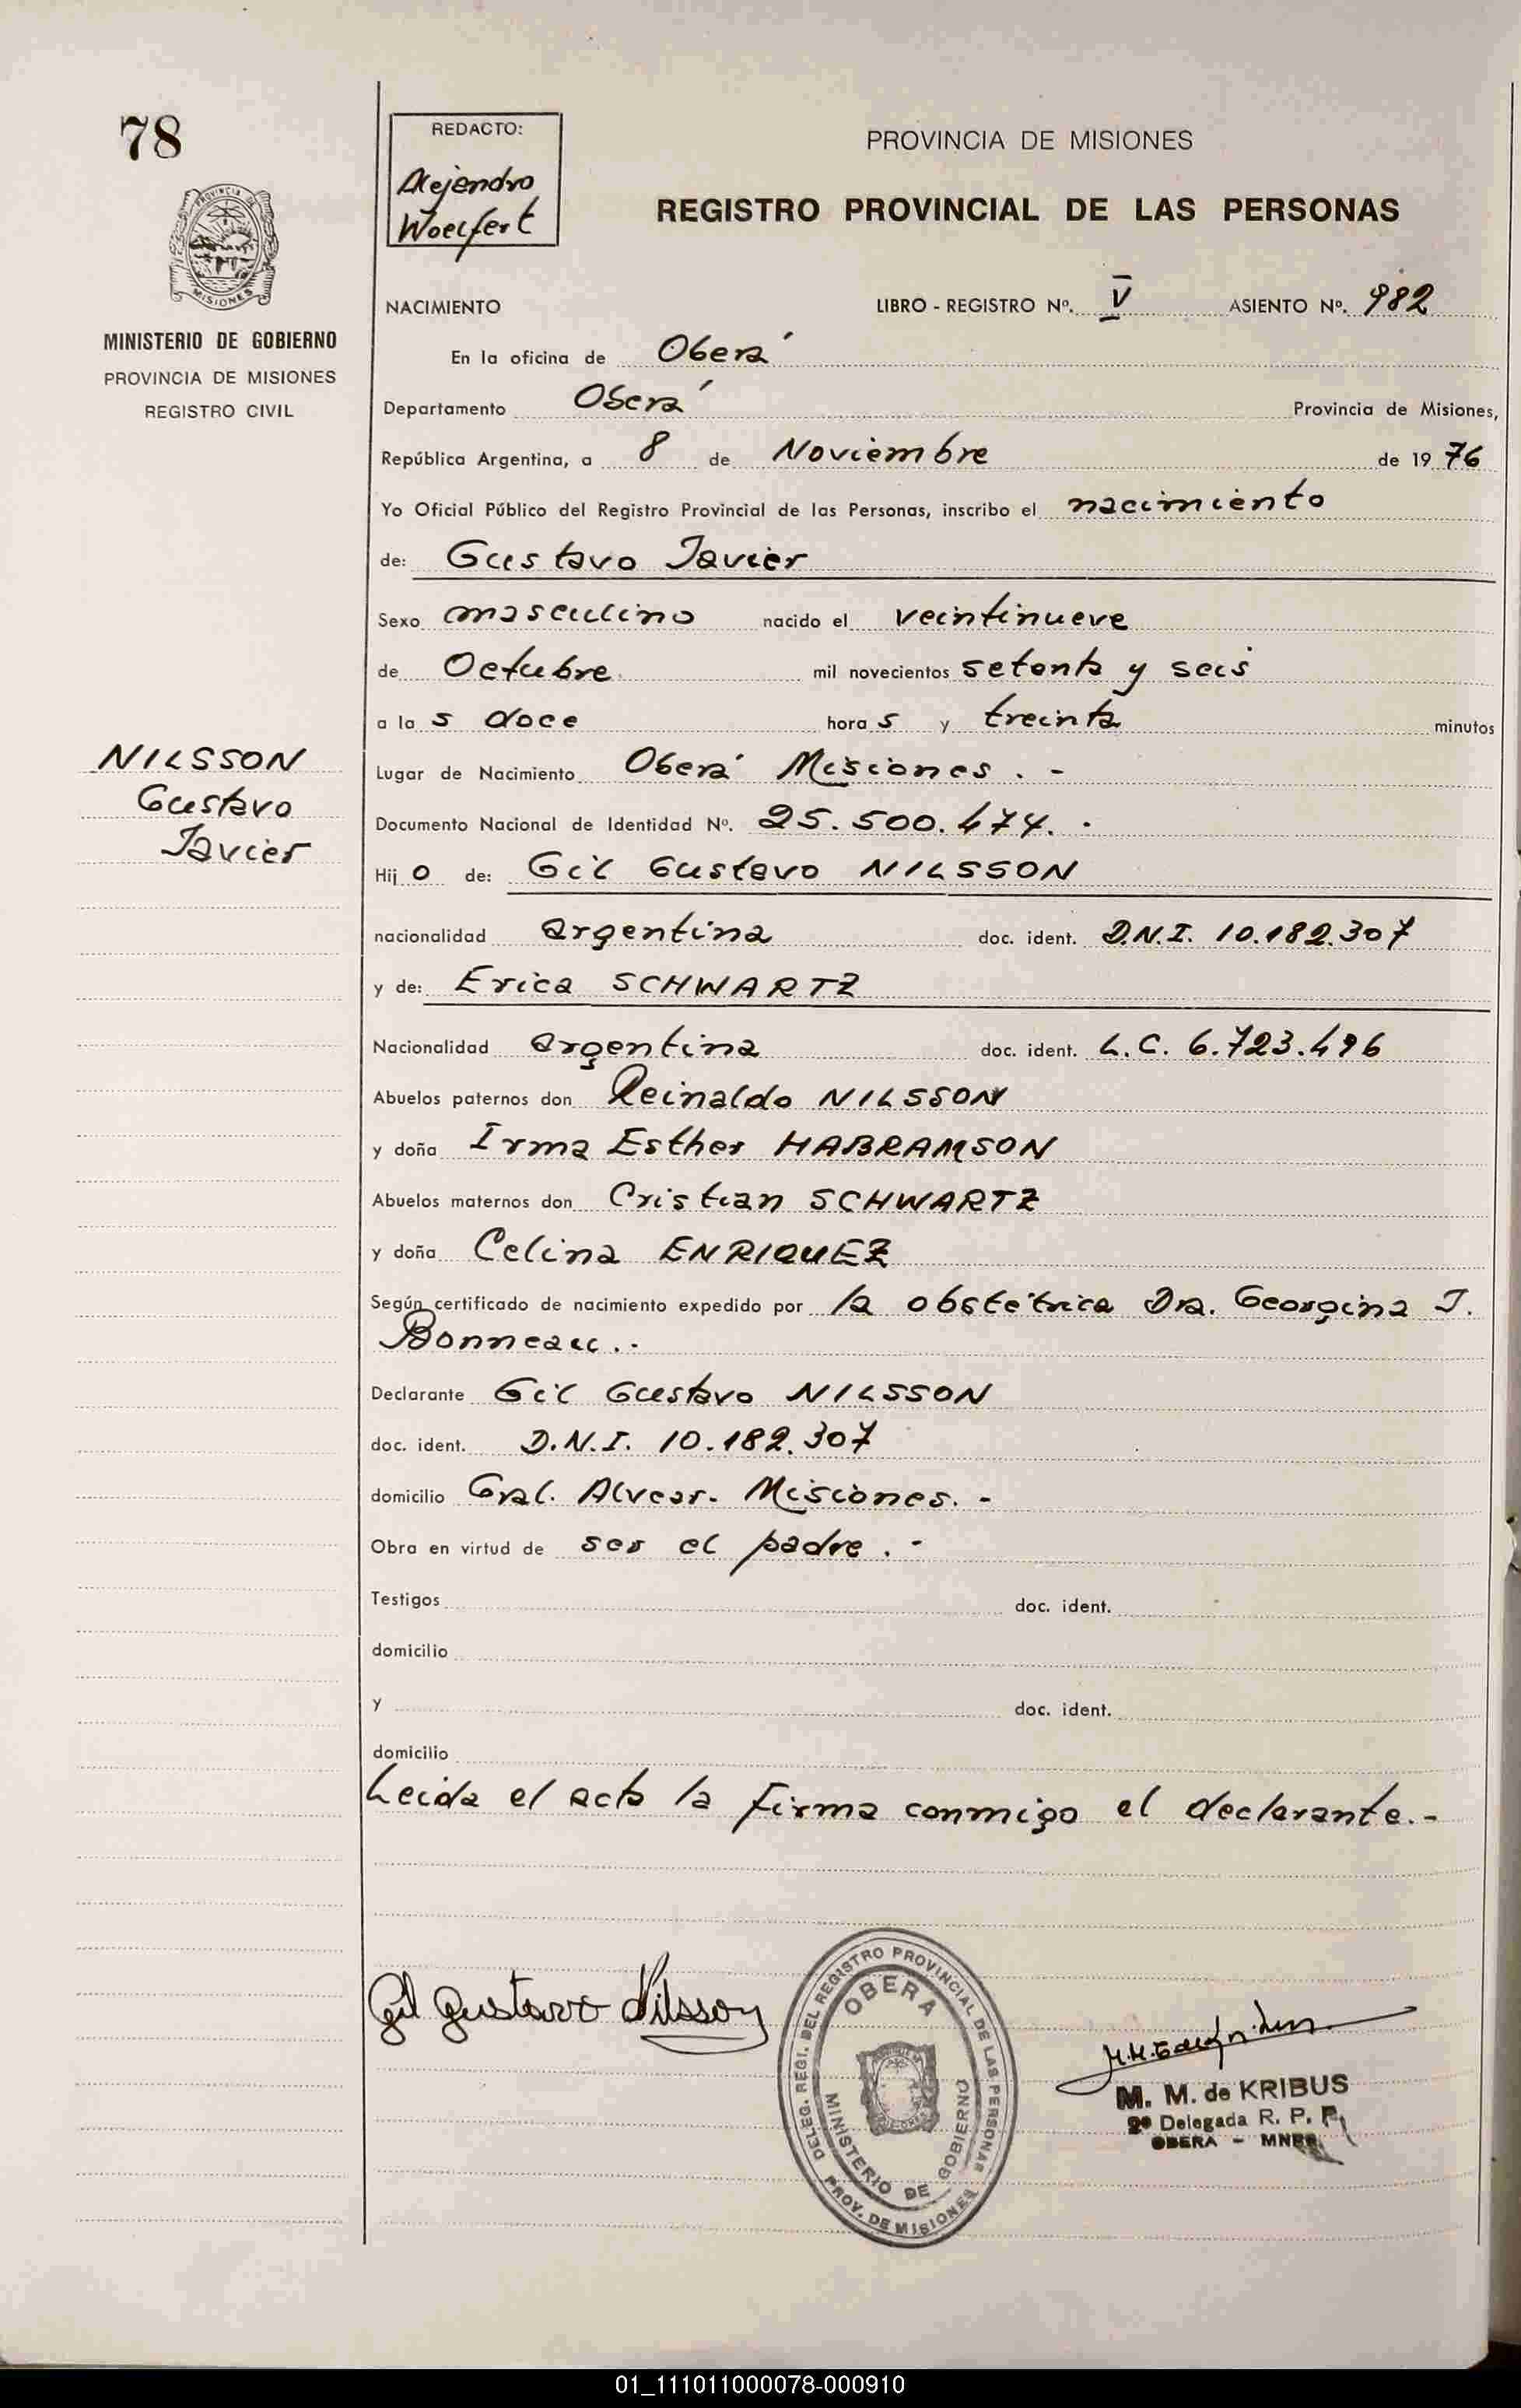 78
REDACTO:
Alejandro
Woelfert
PROVINCIA DE MISIONES
REGISTRO PROVINCIAL DE LAS PERSONAS
PROVINCIA DE
MISIONES
MINISTERIO DE GOBIERNO
PROVINCIA DE MISIONES
REGISTRO CIVIL
NACIMIENTO LIBRO - REGISTRO Nº. V ASIENTO Nº. 982
En la oficina de Oberá
Departamento Oberá Provincia de Misiones,
República Argentina, a 8 de Noviembre de 19 76
Yo Oficial Público del Registro Provincial de las Personas, inscribo el nacimiento
de: Gustavo Javier
Sexo masculino nacido el veintinueve
de Octubre mil novecientos setenta y seis
a la s doce hora s y treinta minutos
NILSSON
Gustavo
Javier
Lugar de Nacimiento Oberá Misiones . -
Documento Nacional de Identidad Nº. 25.500.474. -
Hij o de: Gil Gustavo NILSSON
nacionalidad argentina doc. ident. D.N.I. 10.182.307
y de: Erica SCHWARTZ
Nacionalidad argentina doc. ident. L.C. 6.723.496
Abuelos paternos don Reinaldo NILSSON
y doña Irma Esther HABRAMSON
Abuelos maternos don Cristian SCHWARTZ
y doña Celina ENRIQUEZ
Según certificado de nacimiento expedido por la obstétrica Dra. Georgina J.
Bonneau. -
Declarante Gil Gustavo NILSSON
doc. ident. D.N.I. 10.182.307
domicilio Gral. Alvear. Misiones. -
Obra en virtud de ser el padre . -
Testigos doc. ident.
domicilio
y doc. ident.
domicilio
Leida el acta la firma conmigo el declarante. -
Gil Gustavo Nilsson
DELEG. REGI. DEL REGISTRO PROVINCIAL DE LAS PERSONAS
OBERA
MINISTERIO DE GOBIERNO
PROV. DE MISIONES
M. M. de KRIBUS
2º Delegada R. P. P.
OBERA - MNES.
01_111011000078-000910